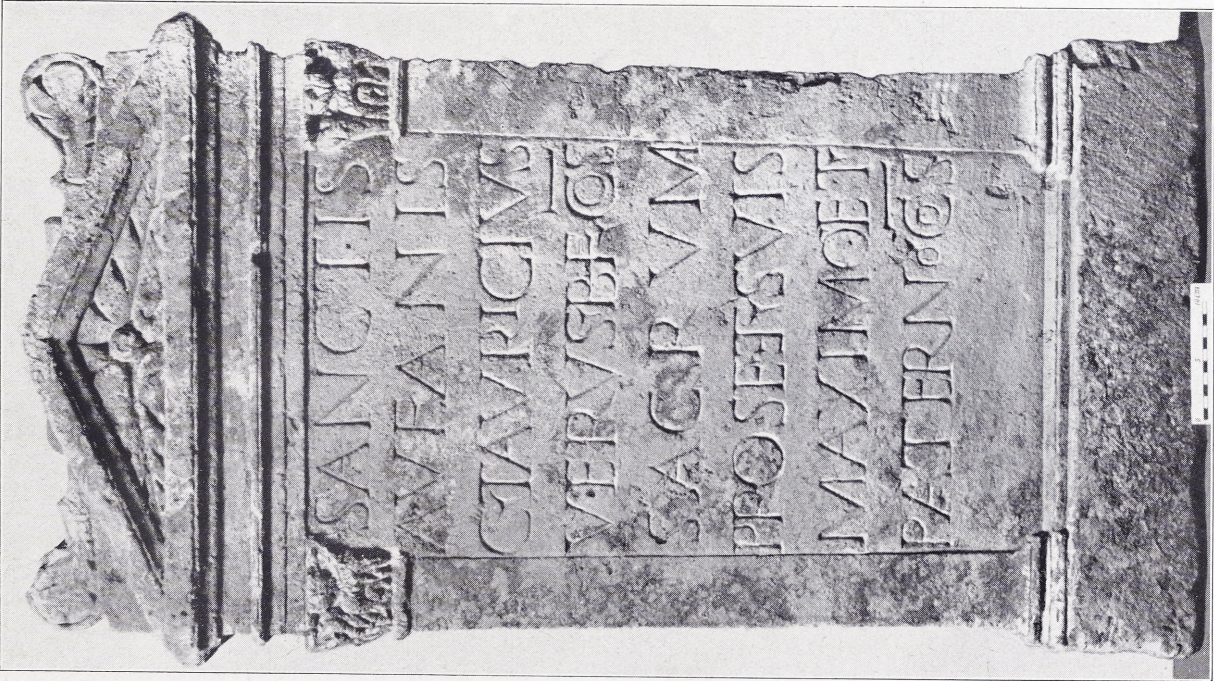 SANCTIS
AVFANIS
CTAVRICIVS
VERVSBFCOS
SACRVM
PROSEETSVIS
MAXIMOET
PATERNOCOS